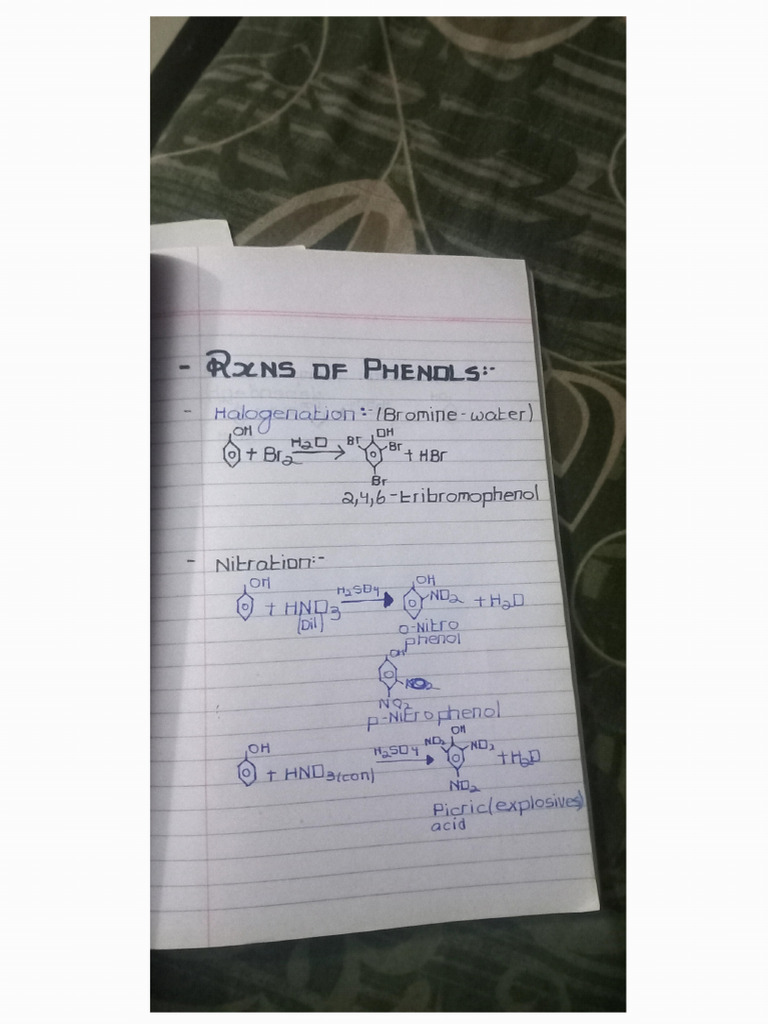 - RXNS OF PHENOLS:-
- Halogenation:- (Bromine-water)
OH + Br2 H2O → OH Br Br Br + HBr
2,4,6-tribromophenol
- Nitration:-
OH + HNO3 (Dil) H2SO4 → OH NO2 + H2O
o-Nitro
phenol
OH
NO2
p-Nitrophenol
OH + HNO3(con) H2SO4 → OH NO2 NO2 NO2 + H2O
Picric(explosives)
acid